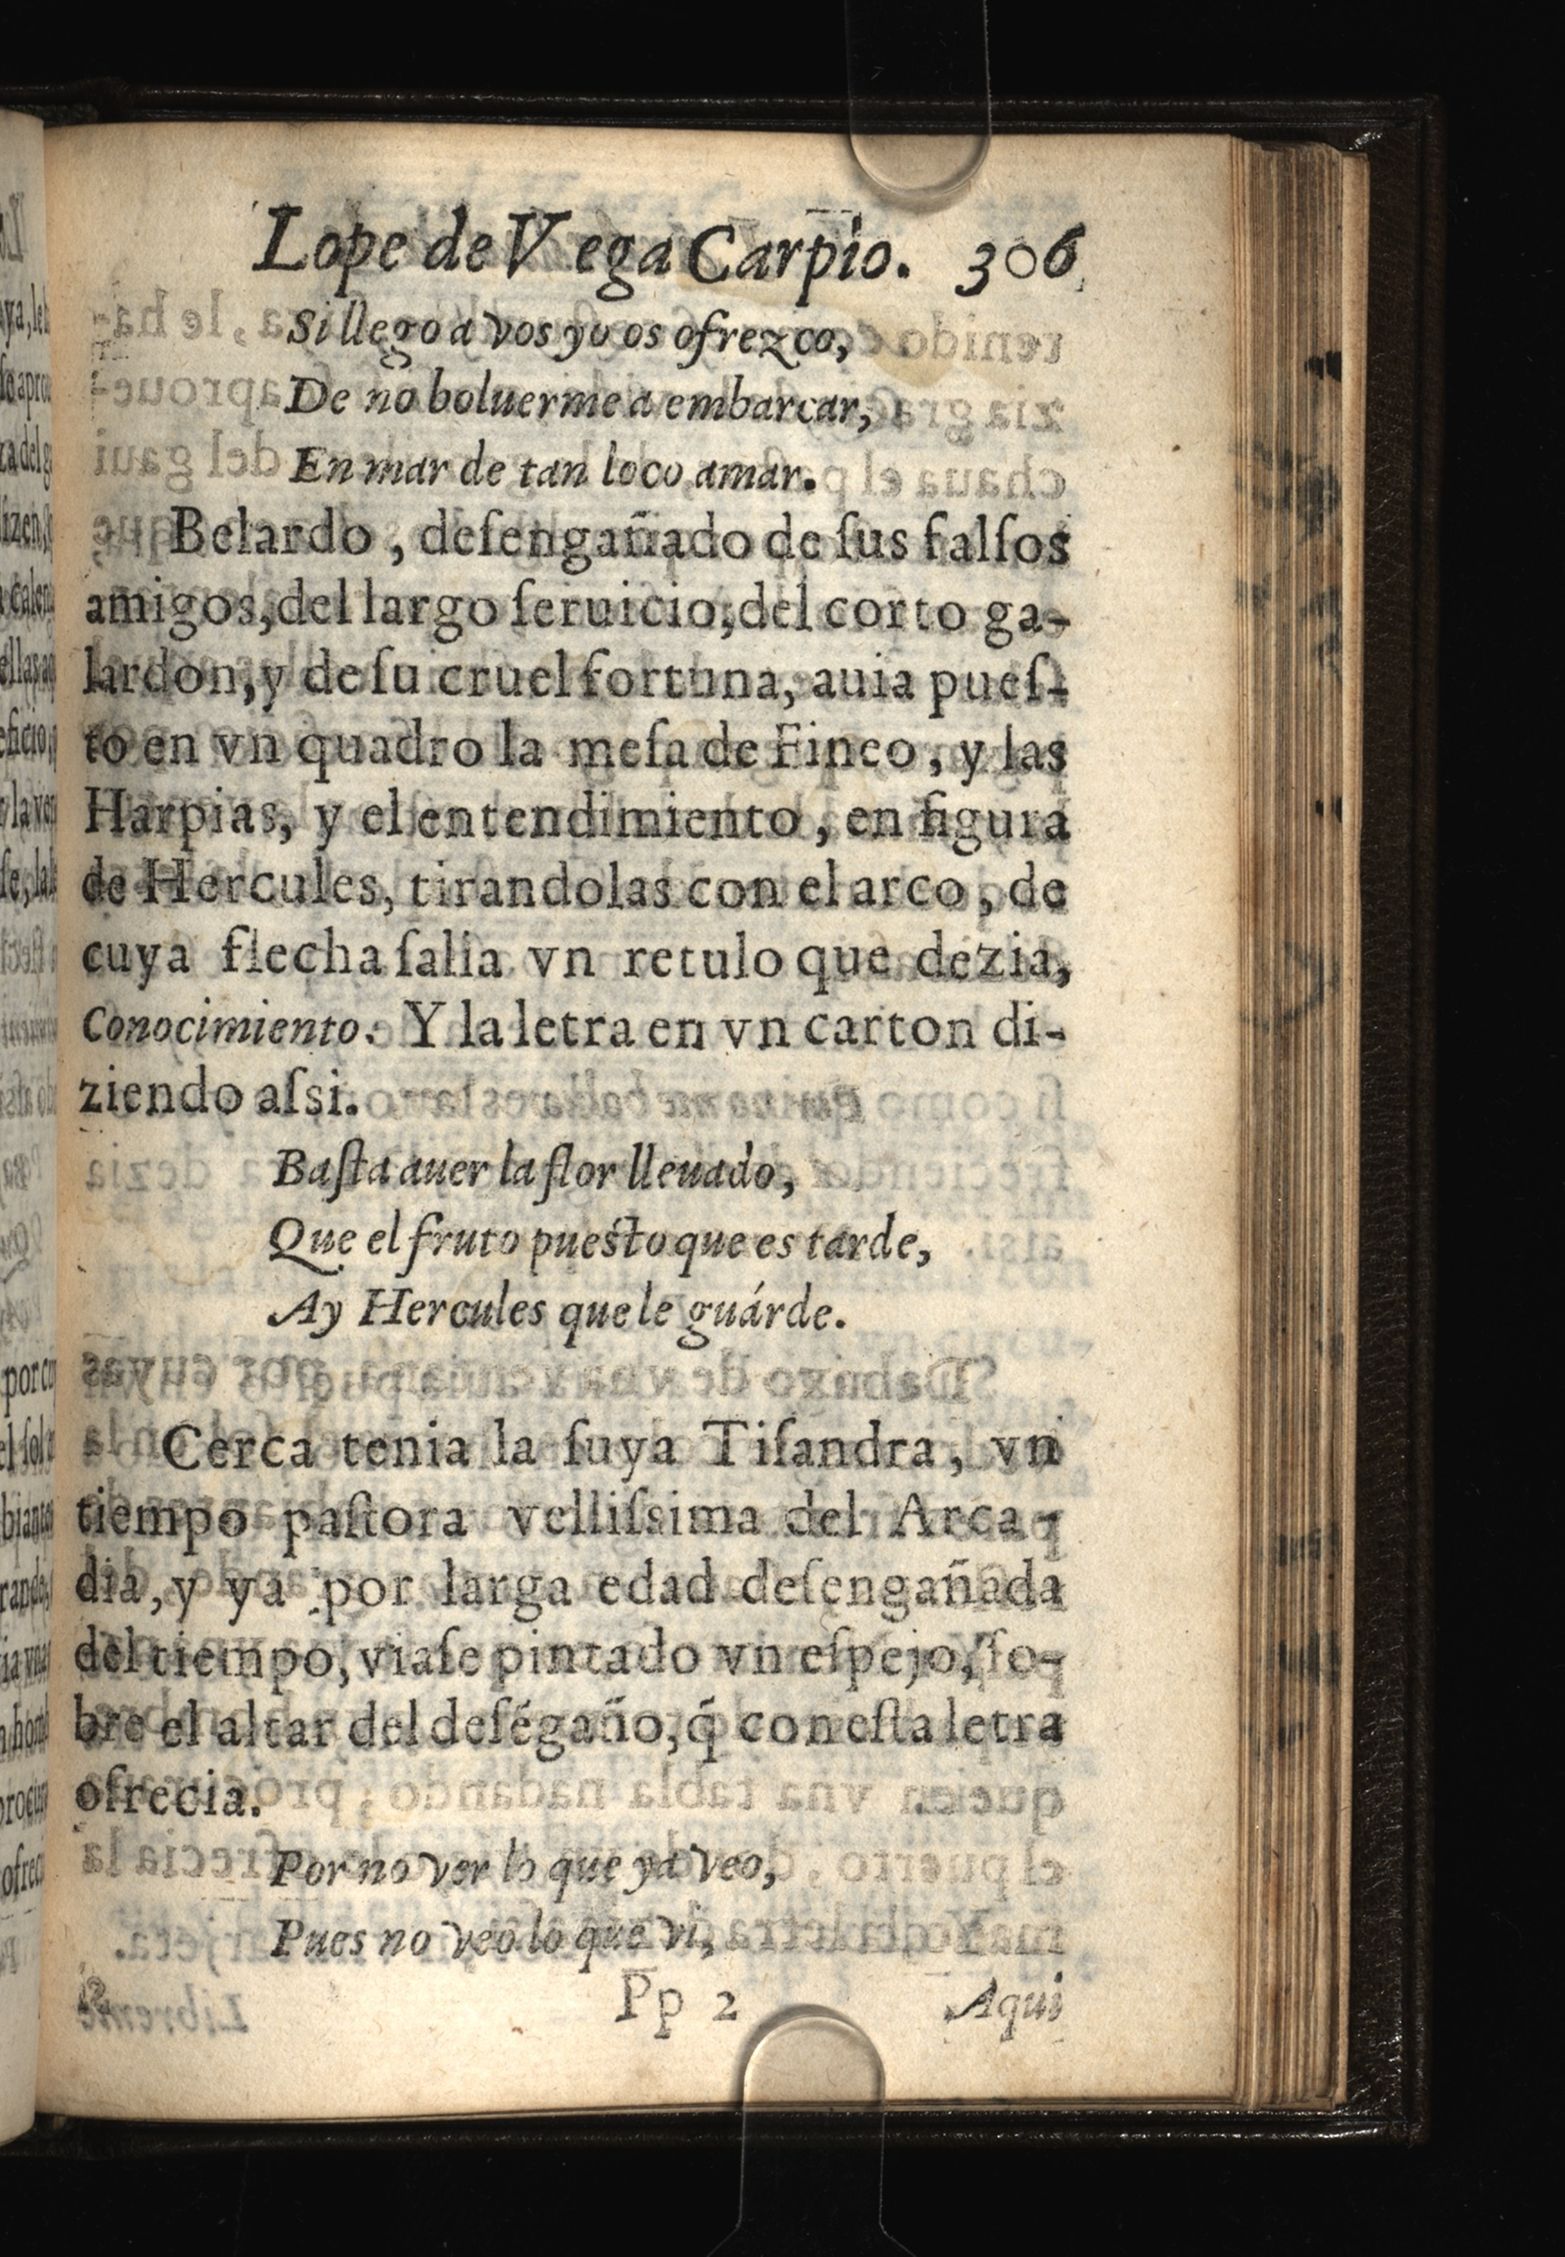 Lope de Vega Carpio. 306
Si llego a vos yo os ofrezco,
De no boluerme a embarcar,
En mar de tan loco amar.
Belardo, deſengañado de ſus falſos
amigos, del largo ſeruicio, del corto ga-
lardon, y de ſu cruel fortuna, auia pueſ-
to en vn quadro la meſa de Fineo, y las
Harpias, y el entendimiento, en figura
de Hercules, tirandolas con el arco, de
cuya flecha ſalia vn retulo que dezia,
Conocimiento. Y la letra en vn carton di-
ziendo aſsi.
Baſta auer la flor lleuado,
Que el fruto puesto que es tarde,
Ay Hercules que le guárde.
Cerca tenia la ſuya Tiſandra, vn
tiempo paſtora velliſsima del Arca-
dia, y ya por larga edad deſengañada
del tiempo, viaſe pintado vn eſpejo, ſo-
bre el altar del deſégaño, q̃ con eſta letra
ofrecia.
Por no ver lo que ya veo,
Pues no veo lo que vi,
Pp 2 Aqui